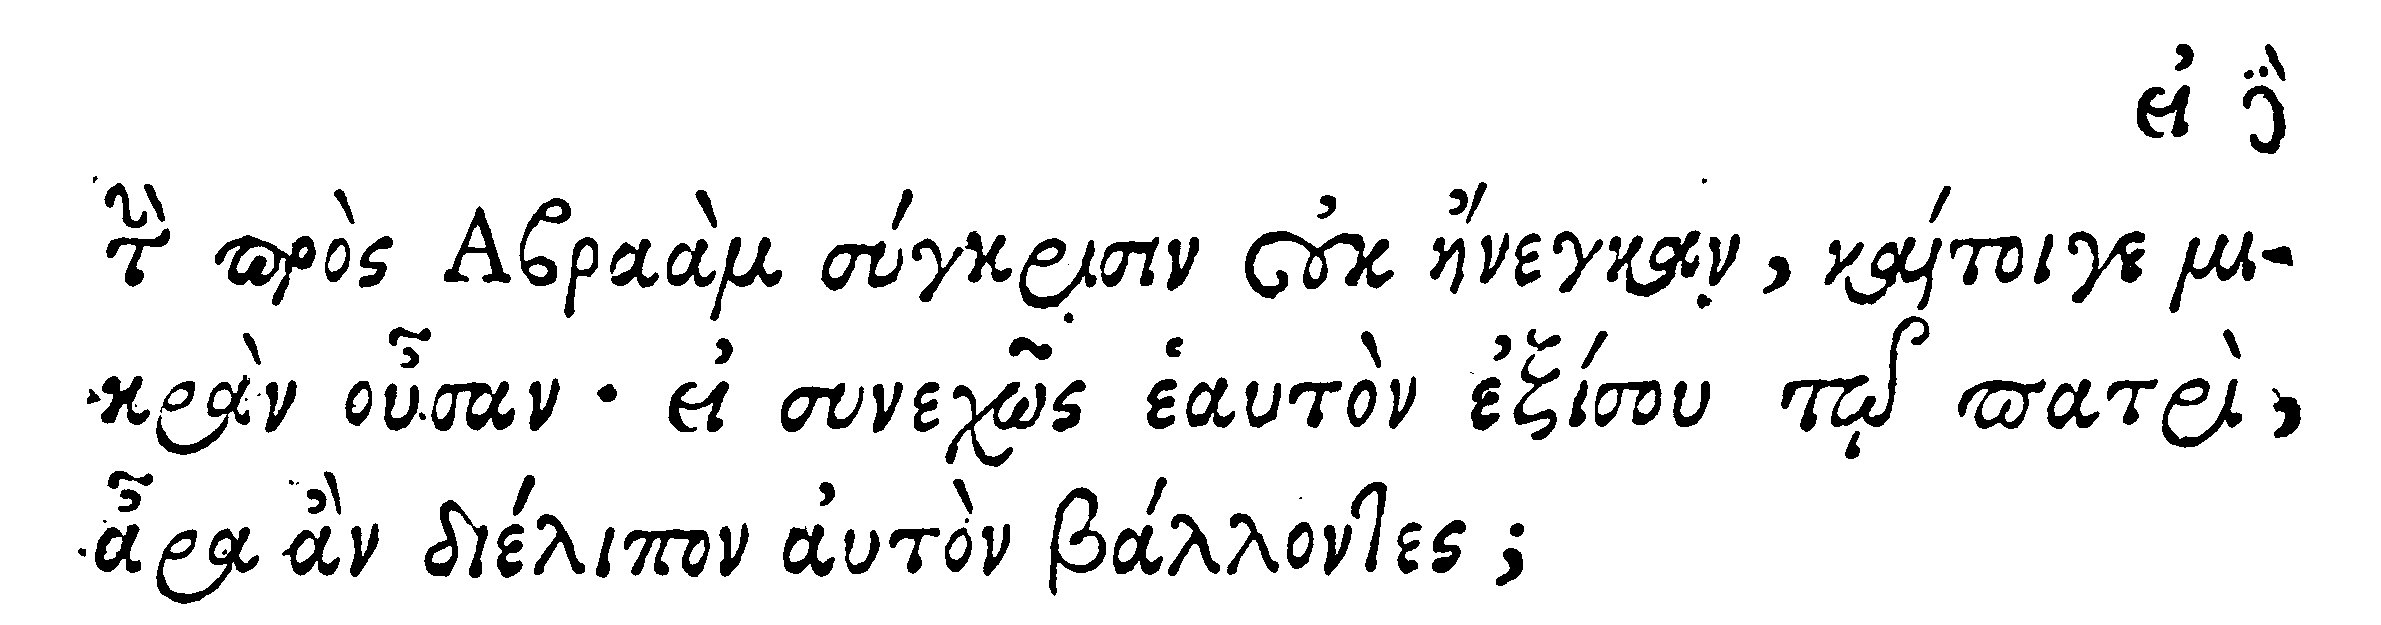 εἰ δὲ
τὴν πρὸς Αβραὰμ σύγκρισιν οὐκ ἤνεγκαν, καίτοιγε μι-
κρὰν οὖσαν· εἰ συνεχῶς ἑαυτὸν ἐξίσου τῷ πατρὶ,
ἆρα ἂν διέλιπον αὐτὸν βάλλοντες;